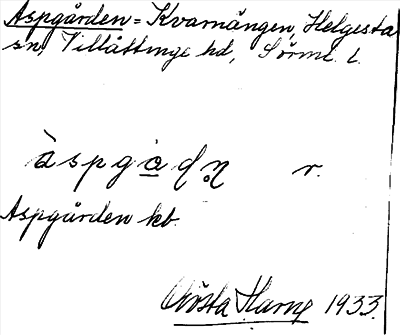 Aspgården = Kvarnängen, Helgesta
sn, Villåttinge hd, Sörml. l.
àspgad̥ṇ r.
Aspgården kb.
Gösta Harne 1933.